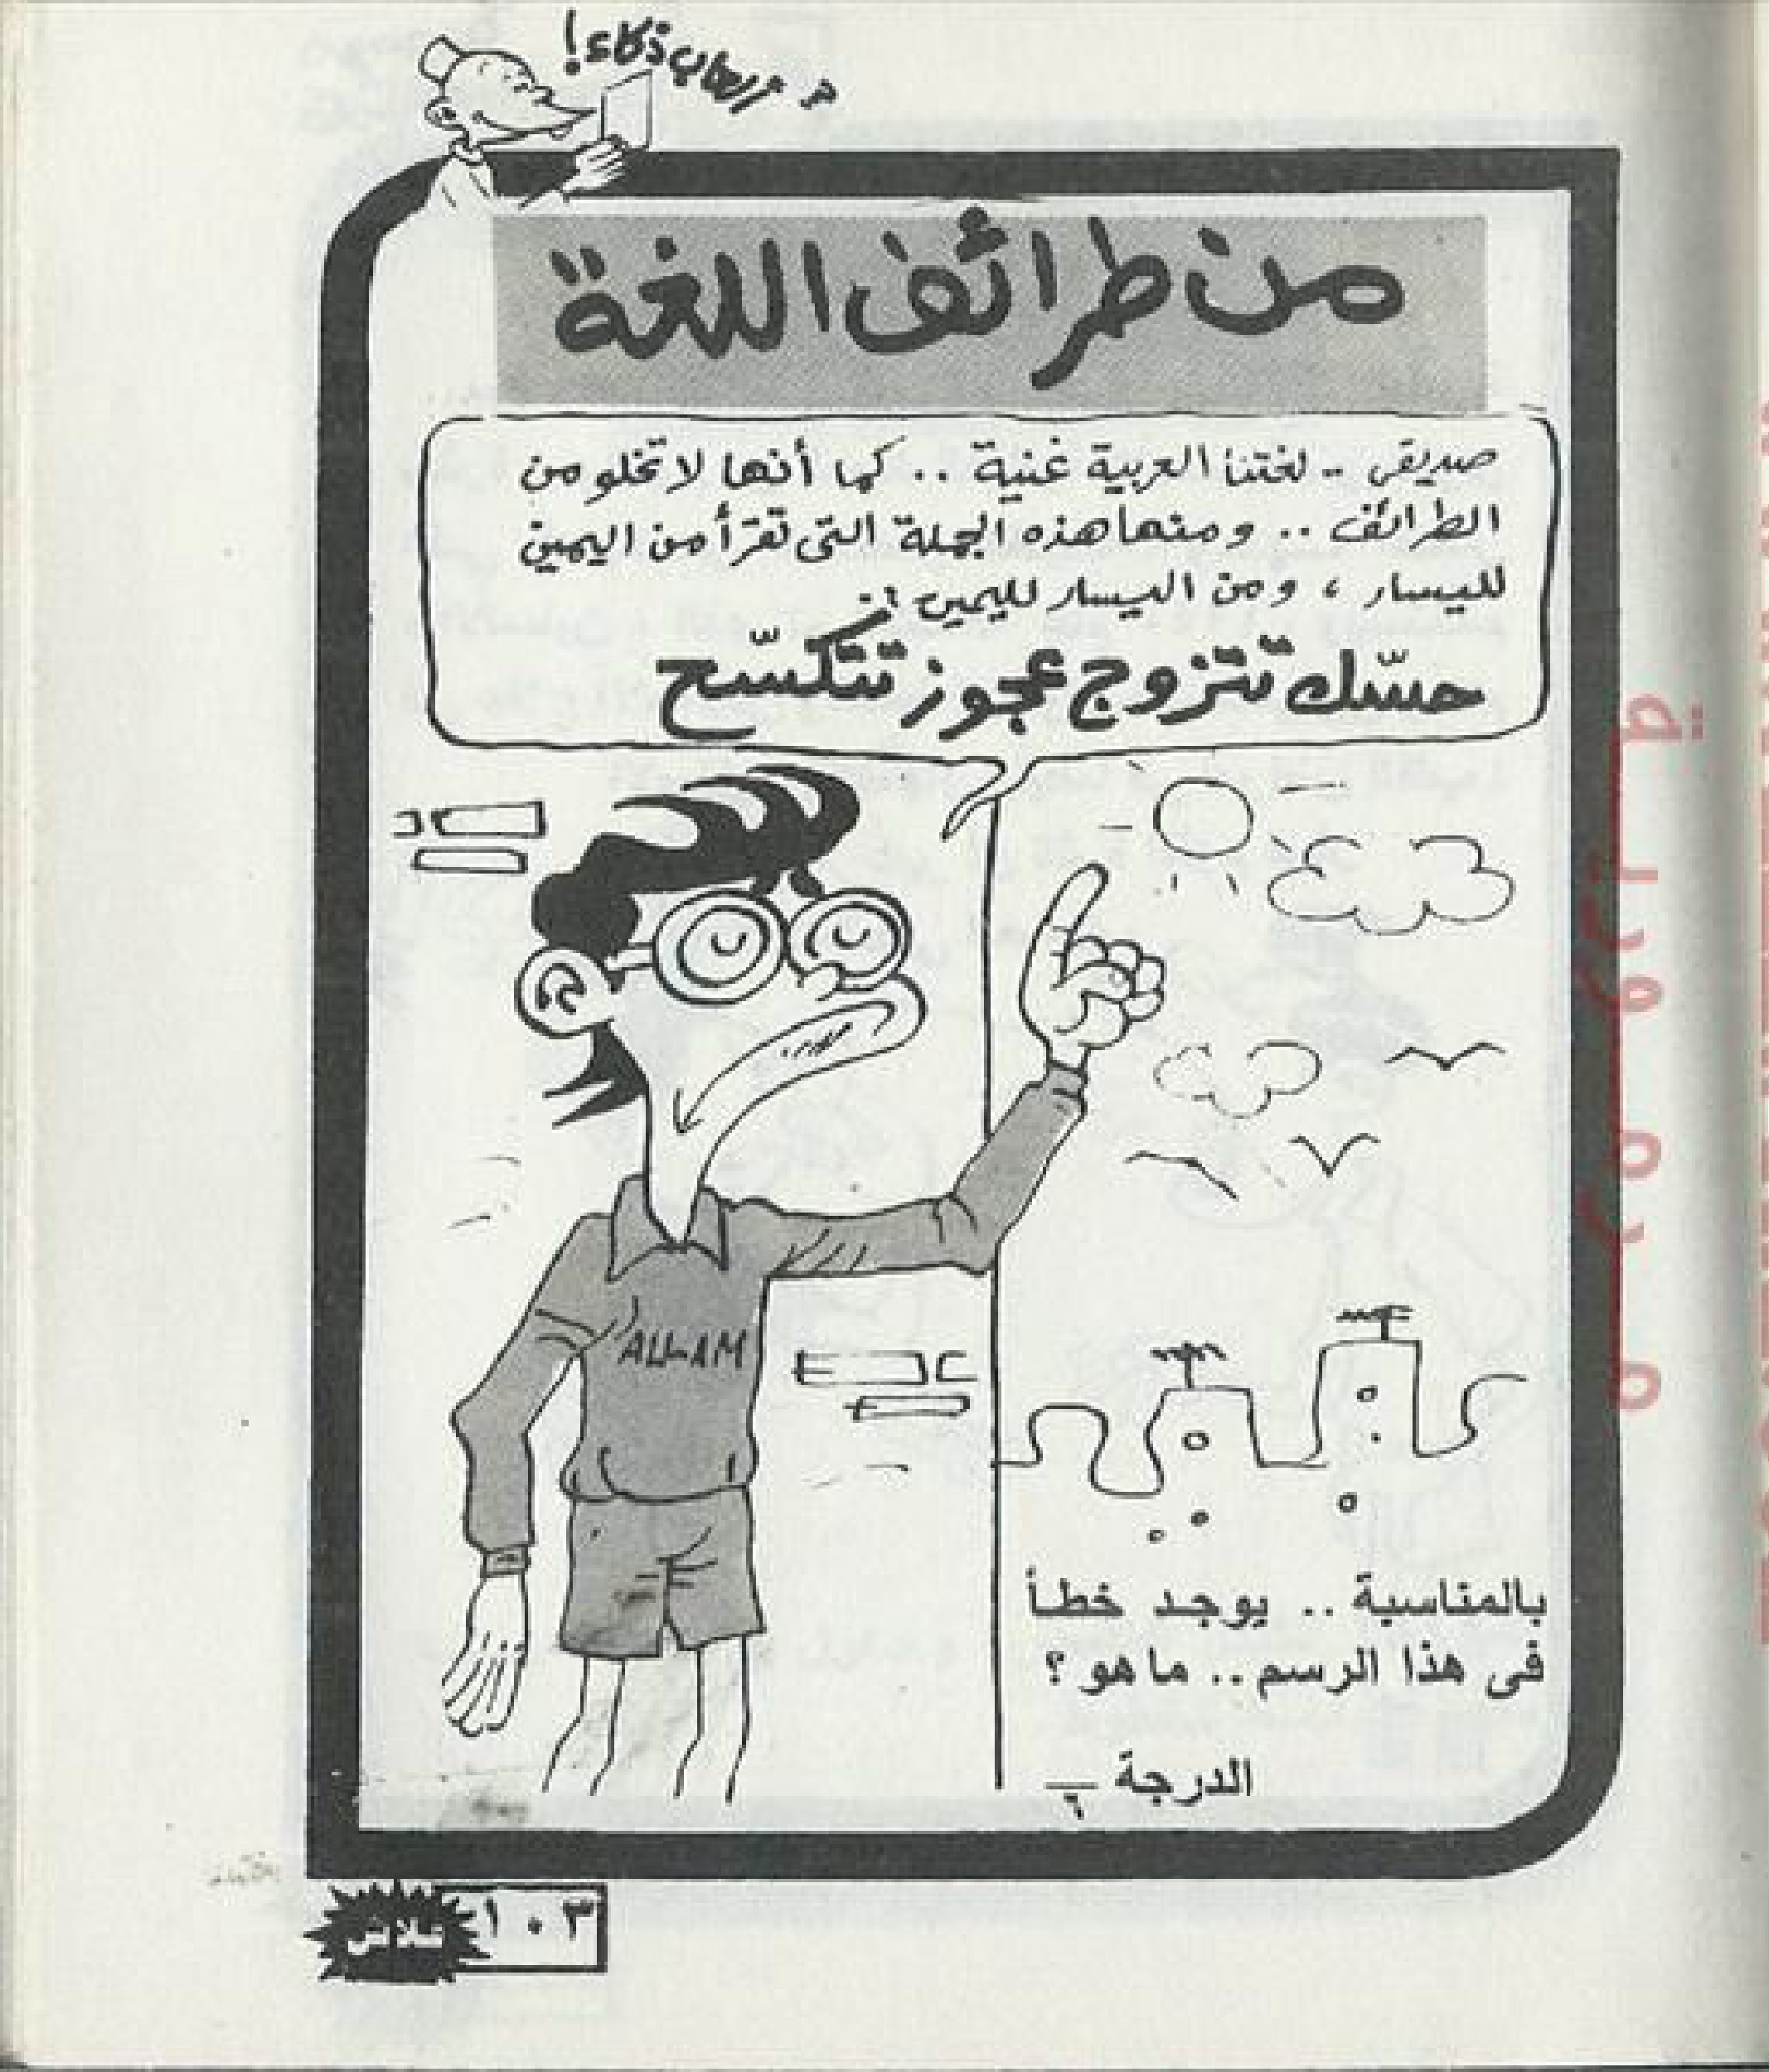 ألعاب ذكاء!
من طرائف اللغة
صديقى .. لغتنا العربية غنية .. كما أنها لا تخلو من
الطرائف .. ومنها هذه الجملة التى تقرأ من اليمين
لليسار ، ومن اليسار لليمين :
حسّك تتزوج عجوز تتكسّح
ALLAM
بالمناسبة .. يوجد خطأ
فى هذا الرسم .. ما هو ؟
الدرجة ــ
٦
١٠٣
فلاش